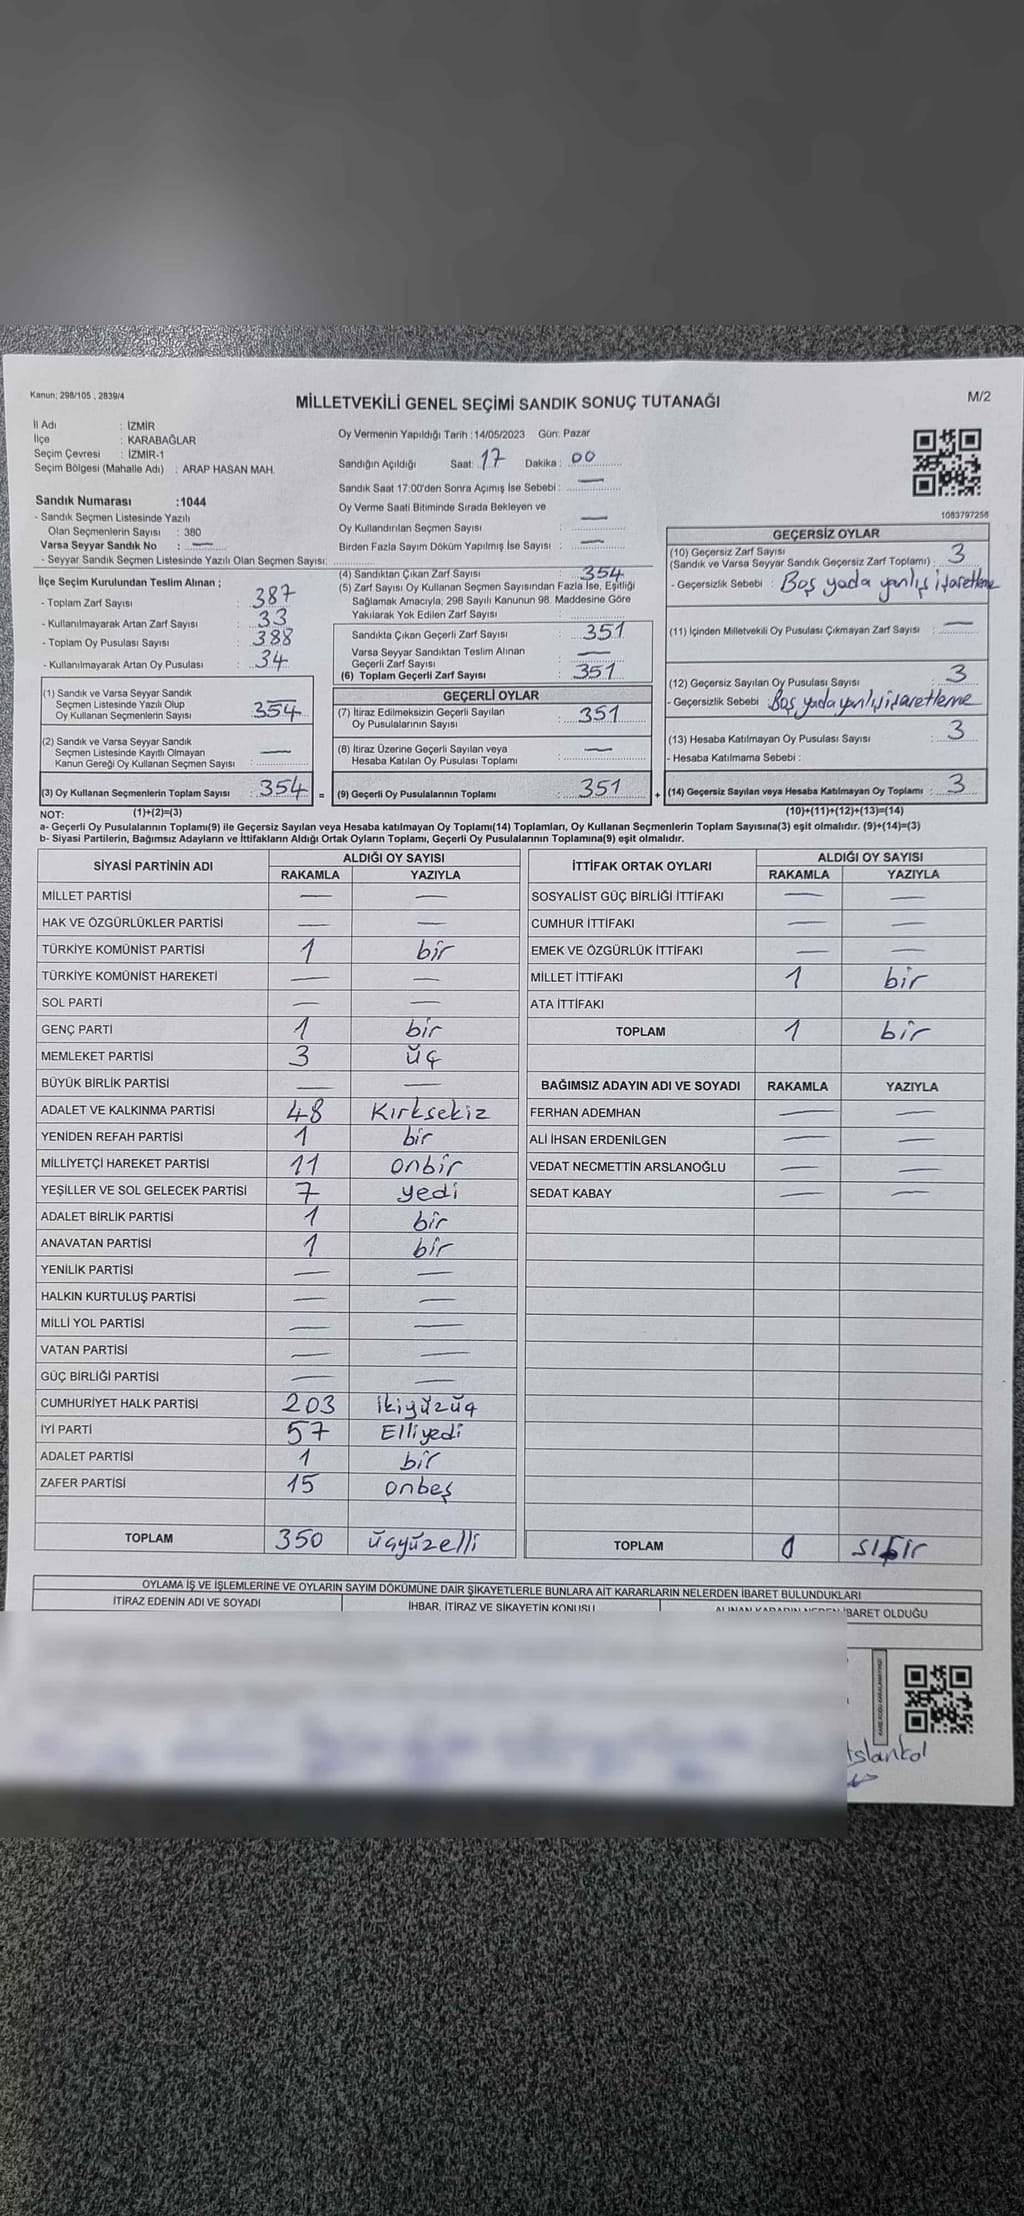 Kanun; 298/105 , 2839/4
MİLLETVEKİLİ GENEL SEÇİMİ SANDIK SONUÇ TUTANAĞI
M/2
İl Adı : İZMİR
İlçe : KARABAĞLAR
Seçim Çevresi : İZMİR-1
Seçim Bölgesi (Mahalle Adı) : ARAP HASAN MAH.
Sandık Numarası :1044
- Sandık Seçmen Listesinde Yazılı
Olan Seçmenlerin Sayısı : 380
Varsa Seyyar Sandık No : —
- Seyyar Sandık Seçmen Listesinde Yazılı Olan Seçmen Sayısı:
İlçe Seçim Kurulundan Teslim Alınan ;
- Toplam Zarf Sayısı : 387
- Kullanılmayarak Artan Zarf Sayısı : 33
- Toplam Oy Pusulası Sayısı : 388
- Kullanılmayarak Artan Oy Pusulası : 34
(1) Sandık ve Varsa Seyyar Sandık
Seçmen Listesinde Yazılı Olup
Oy Kullanan Seçmenlerin Sayısı : 354
(2) Sandık ve Varsa Seyyar Sandık
Seçmen Listesinde Kayıtlı Olmayan
Kanun Gereği Oy Kullanan Seçmen Sayısı : —
(3) Oy Kullanan Seçmenlerin Toplam Sayısı : 354 =
Oy Vermenin Yapıldığı Tarih :14/05/2023 Gün: Pazar
Sandığın Açıldığı Saat: 17 Dakika : 00
Sandık Saat 17:00'den Sonra Açımış İse Sebebi : —
Oy Verme Saati Bitiminde Sırada Bekleyen ve
Oy Kullandırılan Seçmen Sayısı : —
Birden Fazla Sayım Döküm Yapılmış İse Sayısı : —
(4) Sandıktan Çıkan Zarf Sayısı : 354
(5) Zarf Sayısı Oy Kullanan Seçmen Sayısından Fazla İse, Eşitliği
Sağlamak Amacıyla; 298 Sayılı Kanunun 98. Maddesine Göre
Yakılarak Yok Edilen Zarf Sayısı :
Sandıkta Çıkan Geçerli Zarf Sayısı : 351
Varsa Seyyar Sandıktan Teslim Alınan
Geçerli Zarf Sayısı : —
(6) Toplam Geçerli Zarf Sayısı : 351
GEÇERLİ OYLAR
(7) İtiraz Edilmeksizin Geçerli Sayılan
Oy Pusulalarının Sayısı : 351
(8) İtiraz Üzerine Geçerli Sayılan veya
Hesaba Katılan Oy Pusulası Toplamı : —
(9) Geçerli Oy Pusulalarının Toplamı : 351 +
1083797256
GEÇERSİZ OYLAR
(10) Geçersiz Zarf Sayısı
(Sandık ve Varsa Seyyar Sandık Geçersiz Zarf Toplamı) : 3
- Geçersizlik Sebebi : Boş yada yanlış işaretleme
(11) İçinden Milletvekili Oy Pusulası Çıkmayan Zarf Sayısı : —
(12) Geçersiz Sayılan Oy Pusulası Sayısı : 3
- Geçersizlik Sebebi : Boş yada yanlış işaretleme
(13) Hesaba Katılmayan Oy Pusulası Sayısı : 3
- Hesaba Katılmama Sebebi :
(14) Geçersiz Sayılan veya Hesaba Katılmayan Oy Toplamı : 3
NOT: (1)+(2)=(3) (10)+(11)+(12)+(13)=(14)
a- Geçerli Oy Pusulalarının Toplamı(9) ile Geçersiz Sayılan veya Hesaba katılmayan Oy Toplamı(14) Toplamları, Oy Kullanan Seçmenlerin Toplam Sayısına(3) eşit olmalıdır. (9)+(14)=(3)
b- Siyasi Partilerin, Bağımsız Adayların ve İttifakların Aldığı Ortak Oyların Toplamı, Geçerli Oy Pusulalarının Toplamına(9) eşit olmalıdır.
SİYASİ PARTİNİN ADI ALDIĞI OY SAYISI
RAKAMLA YAZIYLA
MİLLET PARTİSİ — —
HAK VE ÖZGÜRLÜKLER PARTİSİ — —
TÜRKİYE KOMÜNİST PARTİSİ 1 bir
TÜRKİYE KOMÜNİST HAREKETİ — —
SOL PARTİ — —
GENÇ PARTİ 1 bir
MEMLEKET PARTİSİ 3 üç
BÜYÜK BİRLİK PARTİSİ — —
ADALET VE KALKINMA PARTİSİ 48 Kırksekiz
YENİDEN REFAH PARTİSİ 1 bir
MİLLİYETÇİ HAREKET PARTİSİ 11 onbir
YEŞİLLER VE SOL GELECEK PARTİSİ 7 yedi
ADALET BİRLİK PARTİSİ 1 bir
ANAVATAN PARTİSİ 1 bir
YENİLİK PARTİSİ — —
HALKIN KURTULUŞ PARTİSİ — —
MİLLİ YOL PARTİSİ — —
VATAN PARTİSİ — —
GÜÇ BİRLİĞİ PARTİSİ — —
CUMHURİYET HALK PARTİSİ 203 ikiyüzüç
İYİ PARTİ 57 Elliyedi
ADALET PARTİSİ 1 bir
ZAFER PARTİSİ 15 onbeş
TOPLAM 350 üçyüzelli
İTTİFAK ORTAK OYLARI ALDIĞI OY SAYISI
RAKAMLA YAZIYLA
SOSYALİST GÜÇ BİRLİĞİ İTTİFAKI — —
CUMHUR İTTİFAKI — —
EMEK VE ÖZGÜRLÜK İTTİFAKI — —
MİLLET İTTİFAKI 1 bir
ATA İTTİFAKI
TOPLAM 1 bir
BAĞIMSIZ ADAYIN ADI VE SOYADI RAKAMLA YAZIYLA
FERHAN ADEMHAN — —
ALİ İHSAN ERDENİLGEN — —
VEDAT NECMETTİN ARSLANOĞLU — —
SEDAT KABAY — —
TOPLAM 0 sıfır
OYLAMA İŞ VE İŞLEMLERİNE VE OYLARIN SAYIM DÖKÜMÜNE DAİR ŞİKAYETLERLE BUNLARA AİT KARARLARIN NELERDEN İBARET BULUNDUKLARI
İTİRAZ EDENİN ADI VE SOYADI İHBAR, İTİRAZ VE ŞİKAYETİN KONUSU ALINAN KARARIN NEDEN İBARET OLDUĞU